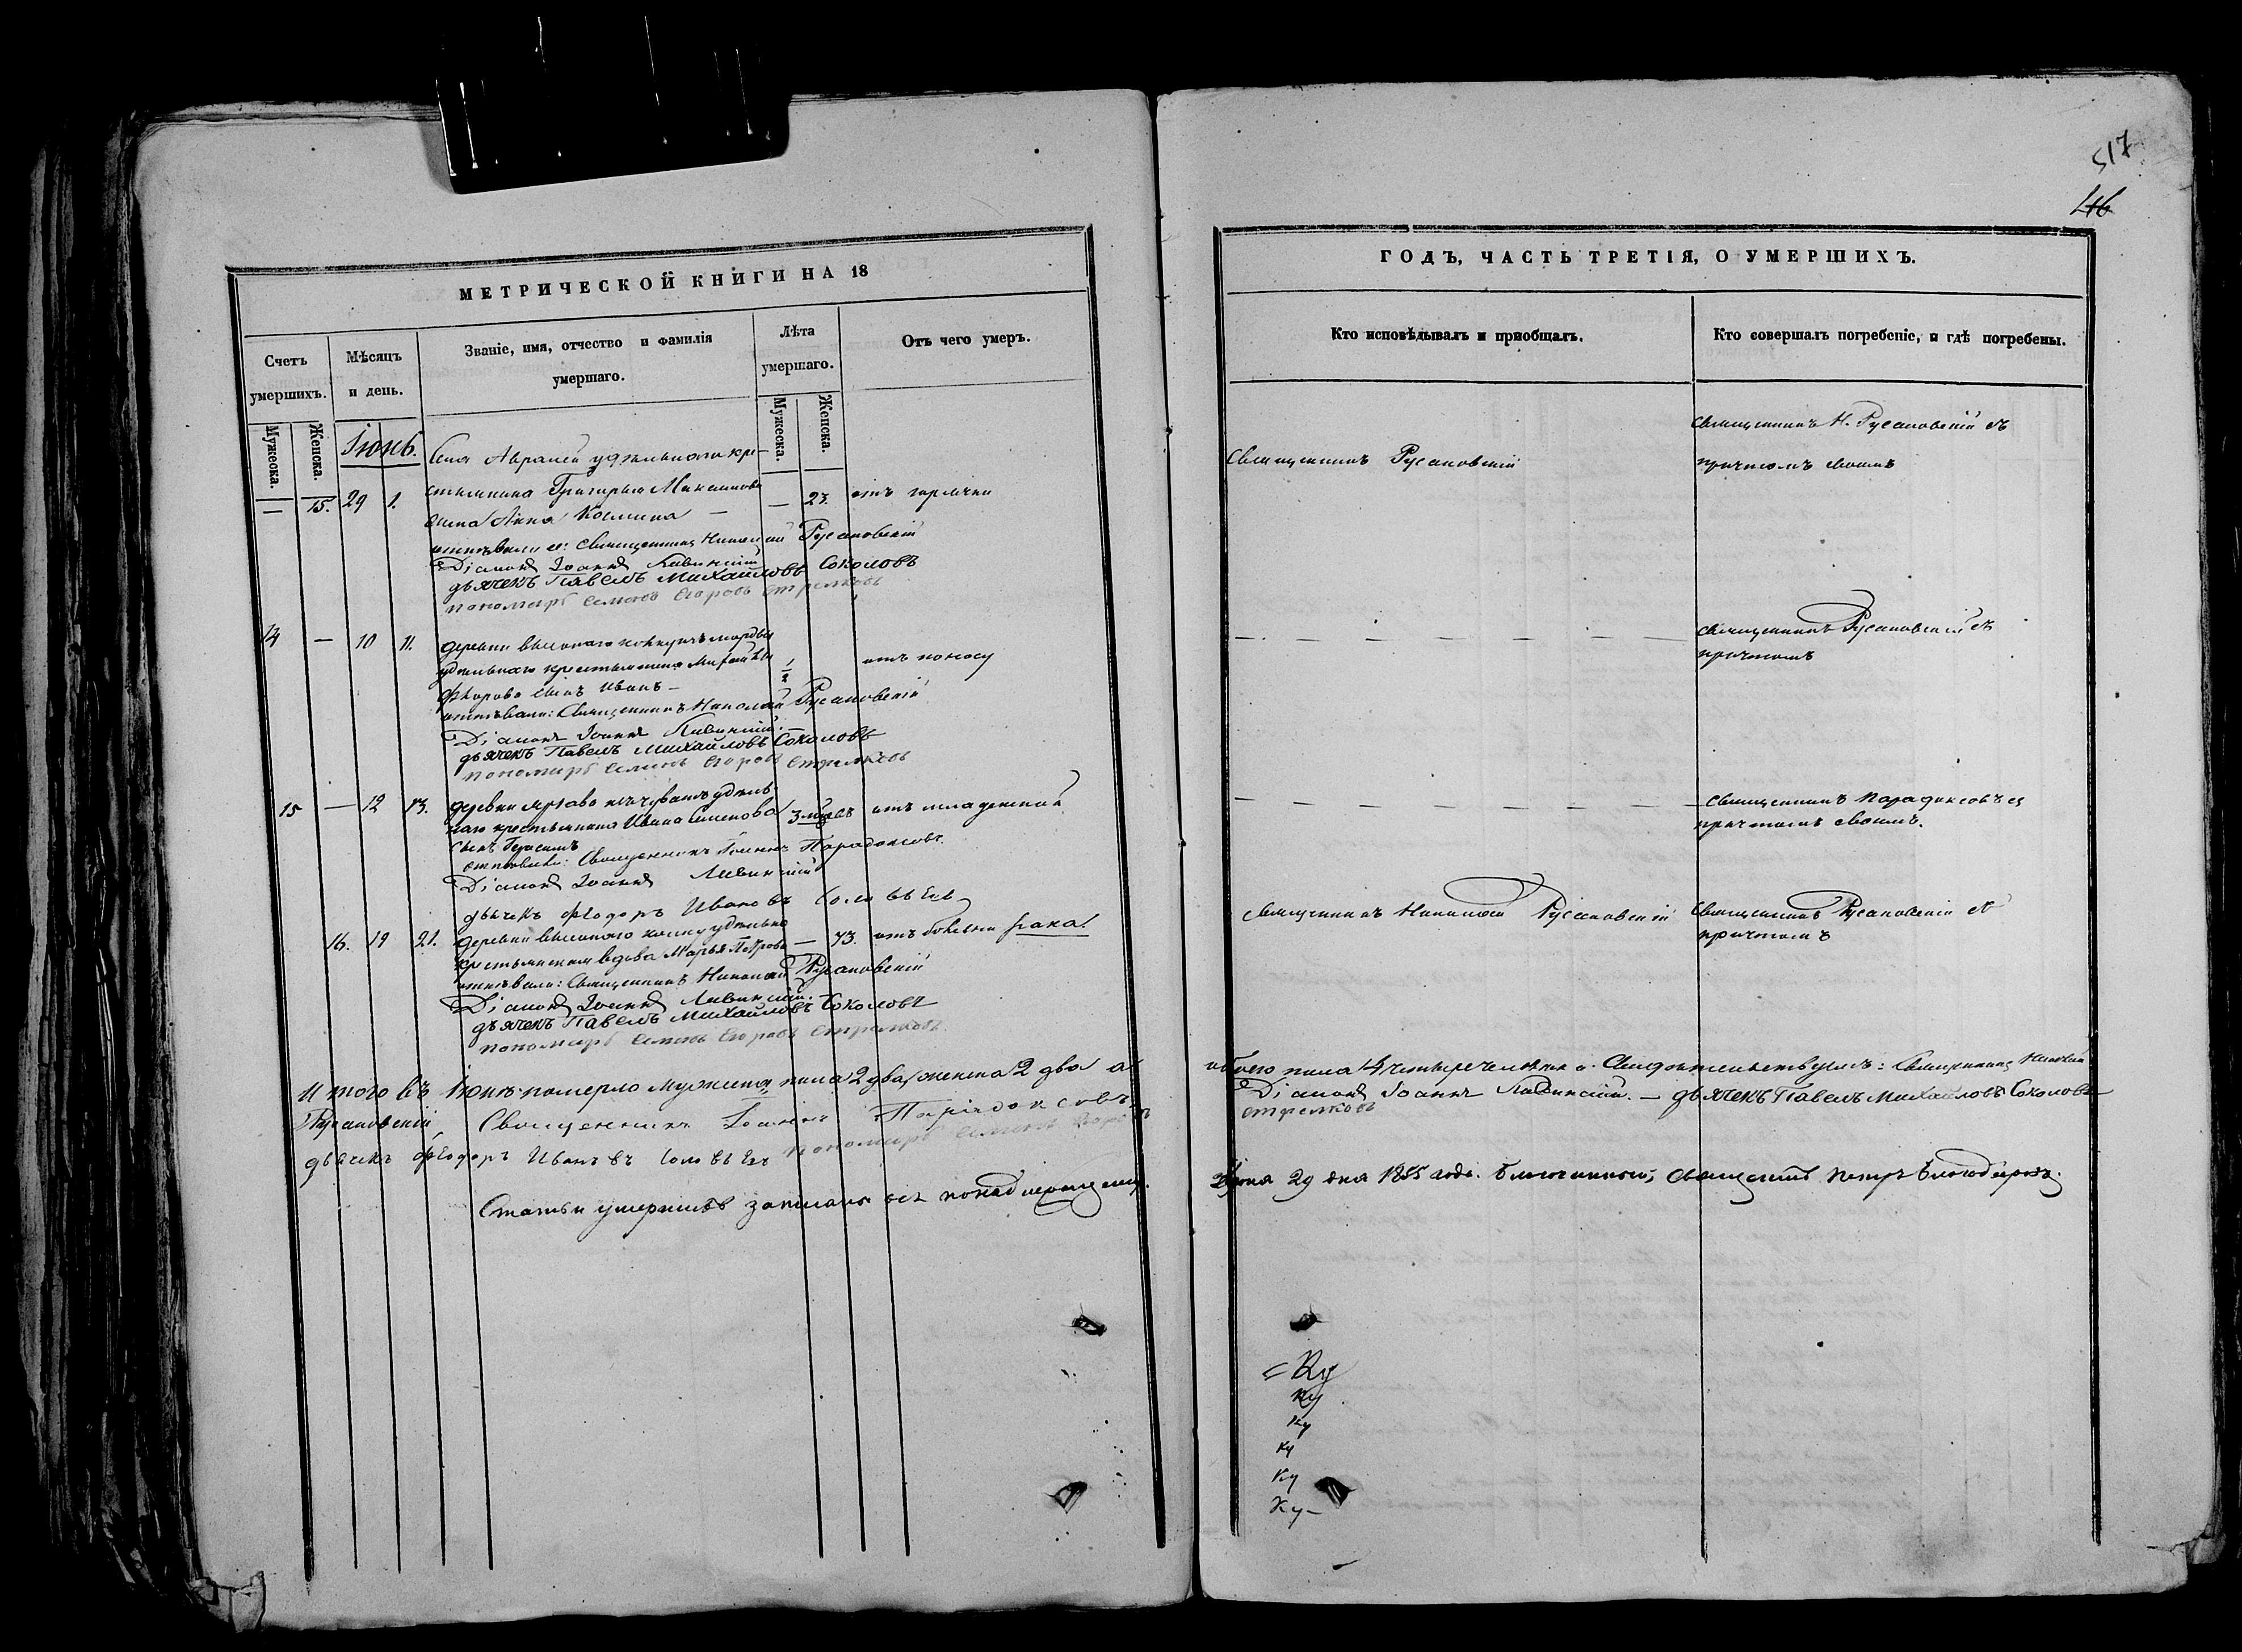 517
46
МЕТРИЧЕСКОЙ КНИГИ НА 18
ГОДЪ, ЧАСТЬ ТРЕТІЯ, О УМЕРШИХЪ.
Счетъ умершихъ.
Мѣсяцъ и день.
Званіе, имя, отчество и фамилія умершаго.
Лѣта умершаго.
Отъ чего умеръ.
Кто исповѣдывалъ и пріобщалъ.
Кто совершалъ погребеніе, и гдѣ погребены.
Мужеска.
Женска.
Мужеска.
Женска.
Іюнь.
Села Авралей удѣльнаго кре-
— 15. 29 1. стьянина Григорья Максимова — 23. отъ горячки
жена Анна Космина —
отпѣвали ее: Священникъ Николай Русановскій
Діаконъ Іоаннъ Ливинскій
дьячекъ Павелъ Михайловъ Соколовъ
пономарь Семенъ Егоровъ Стрелковъ
Священникъ Русановскій
Священникъ Н. Русановскій съ
причтомъ своимъ
14 — 10 11. деревни
удѣльнаго крестьянина 1/2 отъ поносу
сынъ Иванъ —
отпѣвали: Священникъ Николай Русановскій
Діаконъ Іоаннъ Ливинскій. —
дьячекъ Павелъ Михайловъ Соколовъ
пономарь Семенъ Егоровъ Стрелковъ
Священникъ Русановскій съ
причтомъ
15 — 12 13. деревни удѣль-
наго крестьянина Ивана Семенова 3 мѣс отъ младенской
сынъ Герасимъ
отпѣвали: Священникъ Іоаннъ Парадоксовъ.
Діаконъ Іоаннъ Ливинскій
дьячекъ Феодоръ Ивановъ Соловьевъ
Священникъ Парадоксовъ съ
причтомъ своимъ.
16. 19 21. деревни удѣльно
крестьянская вдова Марья Петрова — 73. отъ болезни рака.
отпѣвали: Священникъ Николай Русановскій
Діаконъ Іоаннъ Ливинскій. —
дьячекъ Павелъ Михайловъ Соколовъ
пономарь Семенъ Егоровъ Стрелковъ
Священникъ Николай Русановскій
Священникъ Русановскій съ
причтомъ
Итого въ Іюнѣ померло мужеска пола 2 два, женска 2 два а
обоего пола 4 четыре человека. Свидетельствуемъ: Священникъ Николай
Русановскій Священникъ Іоаннъ Парадоксовъ.
Діаконъ Іоаннъ Ливинскій. — дьячекъ Павелъ Михайловъ Соколовъ
дьячекъ Феодоръ Ивановъ Соловьевъ пономарь Семенъ Егоровъ
Стрелковъ
Статьи умершихъ записаны все понадлежащему.
Іюня 29 дня 1855 года. Благочинный, Священникъ Петръ
Ку
Ку
Ку
Ку
Ку
Ку —